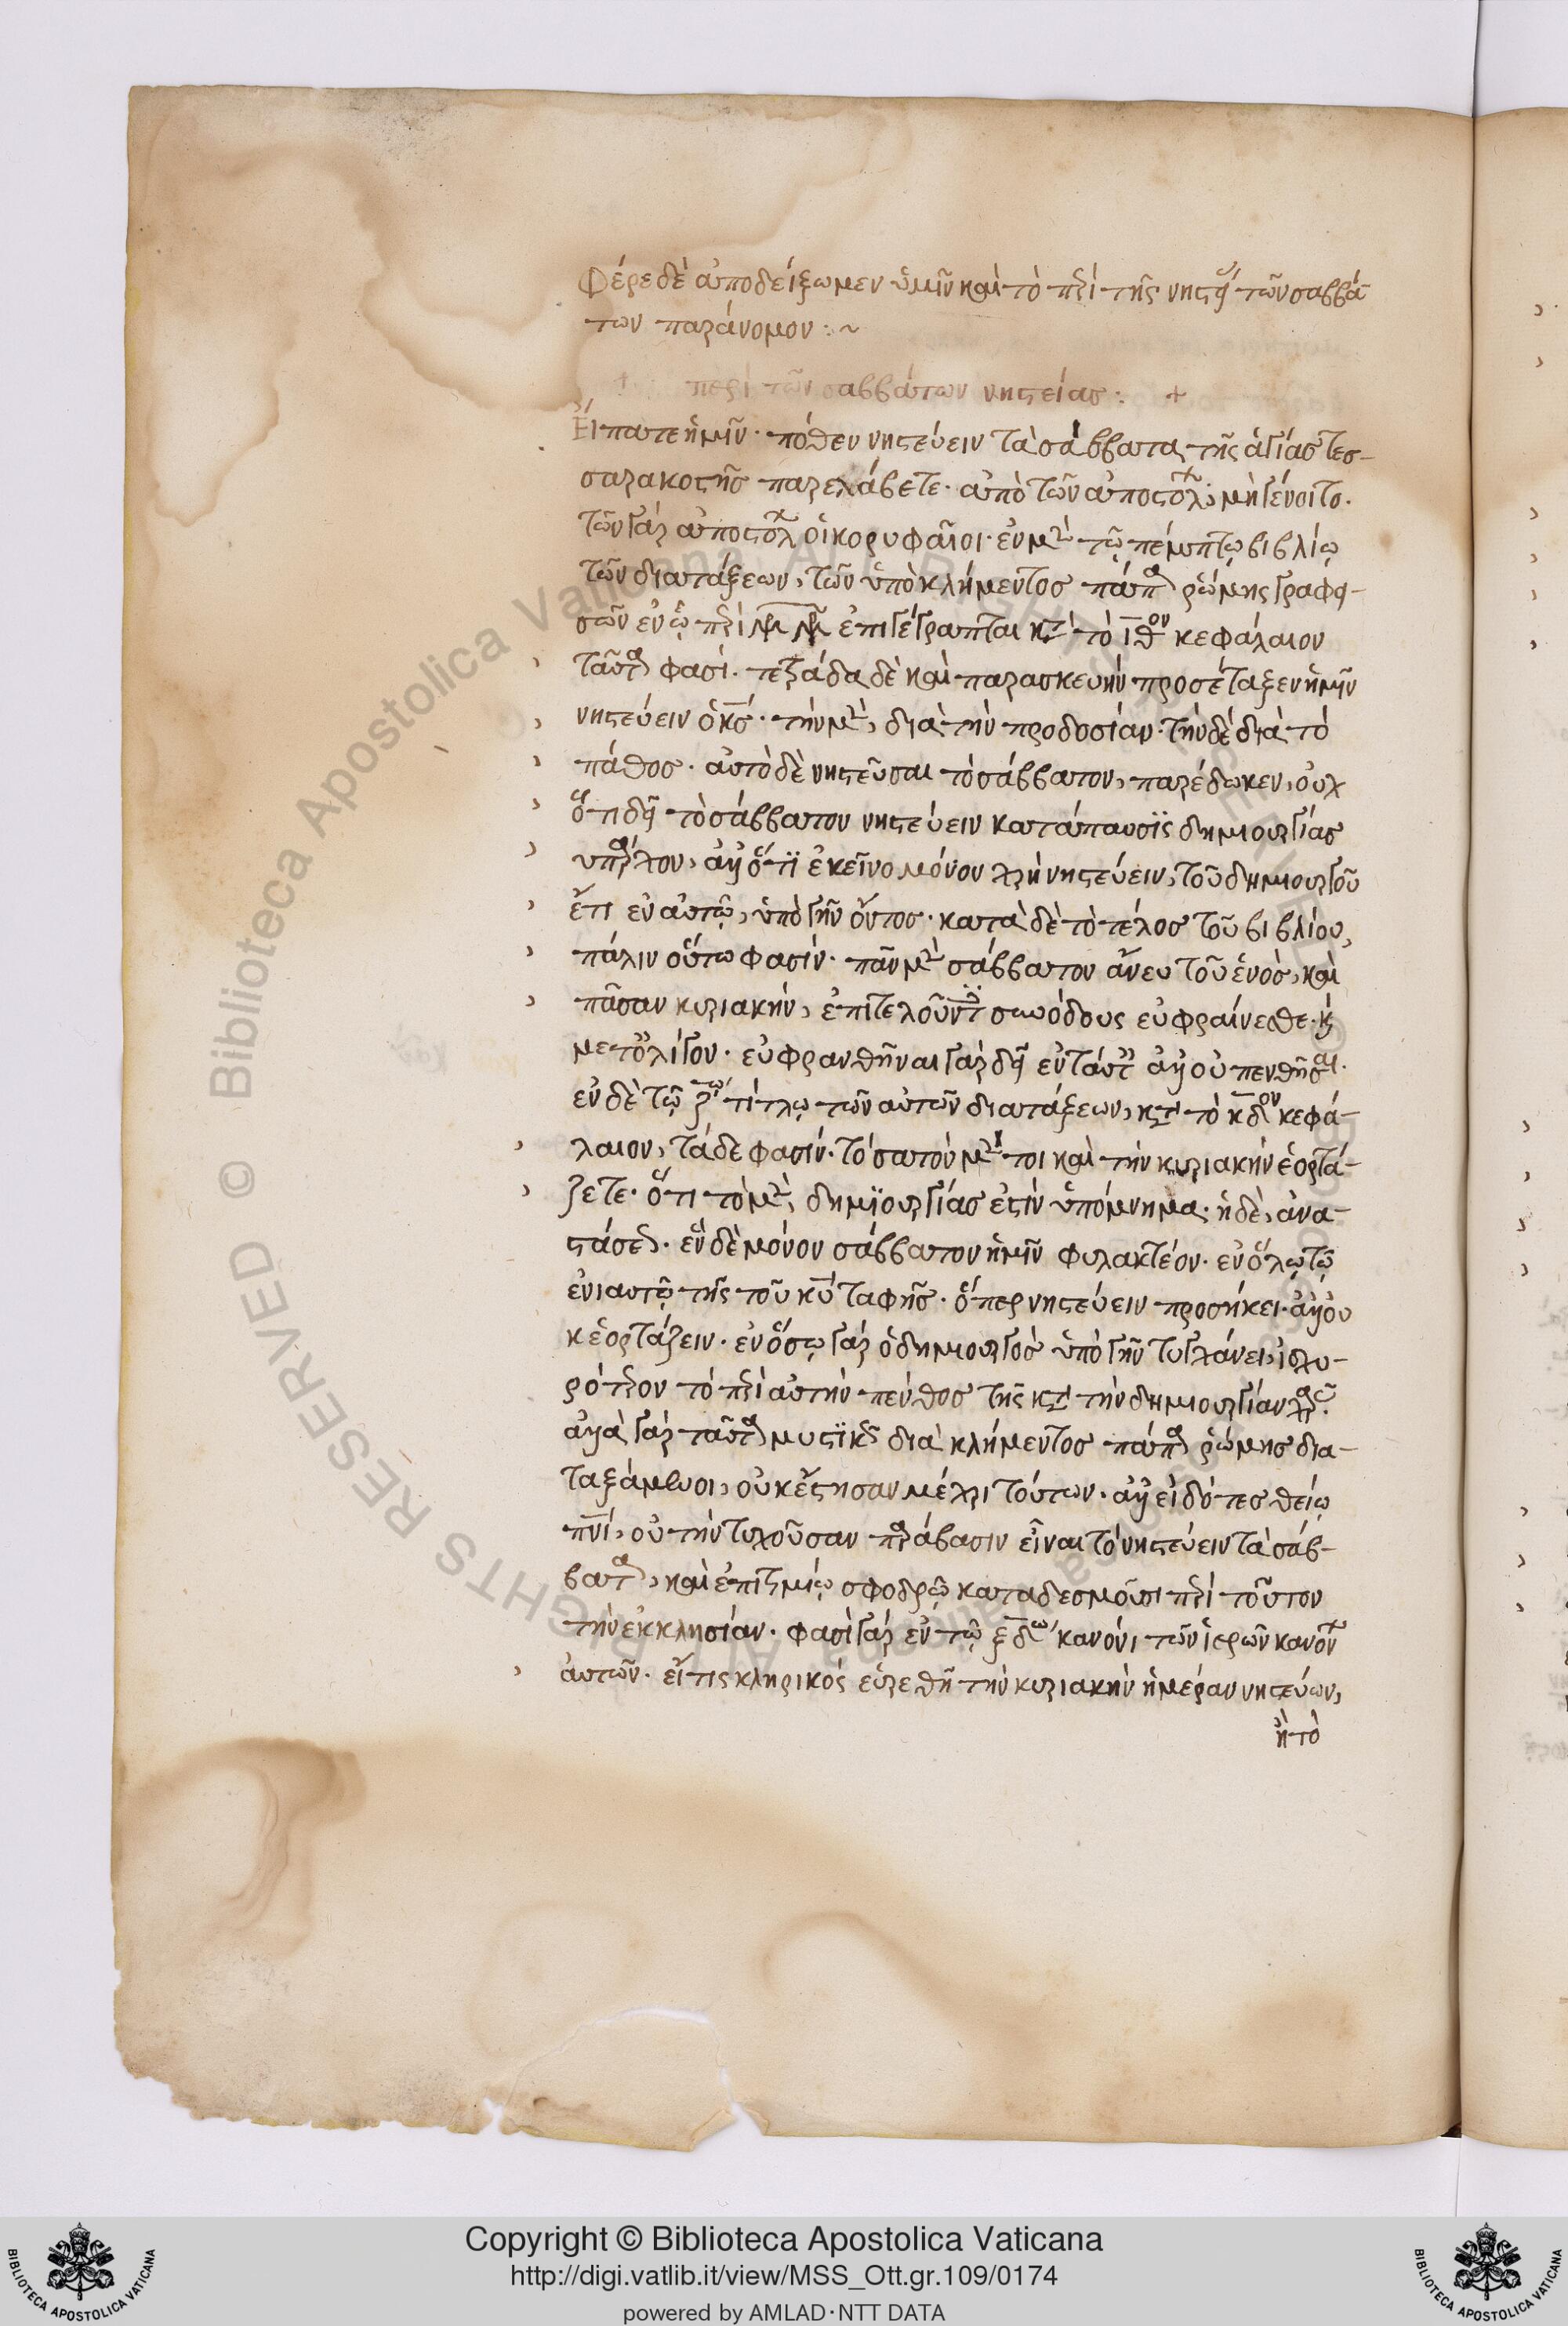 Φέρε δὲ ἀποδείξωμεν ὑμῖν καὶ τὸ περὶ τῆς νηστείας τῶν σαββά-
των παράνομον :~
+ περὶ τῶν σαββάτων νηστείας : +
Εἴπατε ἡμῖν· πόθεν νηστεύειν τὰ σάββατα τῆς ἁγίας τεσ-
σαρακοστῆς παρελάβετε· ἀπὸ τῶν ἀποστόλων; μὴ γένοιτο.
τῶν γὰρ ἀποστόλων οἱ κορυφαῖοι· ἐν μὲν τῷ πέμπτῳ βιβλίῳ
τῶν διατάξεων, τῶν ὑπὸ κλήμεντος πάπα ῥώμης γραφει-
σῶν ἐν ᾧ περὶ ἐπιγέγραπται κατὰ τὸ ιθον κεφάλαιον
ταῦτα φασί. τετράδα δὲ καὶ παρασκευὴν προσέταξεν ἡμῖν
νηστεύειν ὁ κς· τὴν μὲν, διὰ τὴν προδοσίαν· τὴν δὲ διὰ τὸ
πάθος. αὐτὸ δὲ νηστεῦσαι τὸ σάββατον, παρέδωκεν, οὐχ
ὅτι δεῖ τὸ σάββατον νηστεύειν κατάπαυσϊς δημιουργίας
ὑπάρχον, ἀλλ' ὅτϊ ἐκεῖνο μόνον χρὴ νηστεύειν, τοῦ δημιουργοῦ
ἔτι ἐν αὐτῷ, ὑπὸ γῆν ὄντος. κατὰ δὲ τὸ τέλος τοῦ βιβλίου,
πάλιν οὕτω φασίν. πᾶν μὲν σάββατον ἄνευ τοῦ ἑνὸς, καὶ
πᾶσαν κυριακήν, ἐπιτελοῦντες συνόδους εὐφραίνεσθε. καὶ
μετ' ὀλίγον. εὐφρανθῆναι γὰρ δεῖ ἐν ταύταις ἀλλ' οὐ πενθῆσαι.
ἐν δὲ τῷ ζω τίτλῳ τῶν αὐτῶν διατάξεων, κατὰ τὸ κδον κεφά-
λαιον, τάδε φασίν. τὸ σάτον μέν τοι καὶ τὴν κυριακὴν ἑορτά-
ζετε. ὅτι τὸ μὲν, δημϊουργίας ἐστὶν ὑπόμνημα· ἡ δὲ, ἀνα-
στάσεως. ἓν δὲ μόνον σάββατον ἡμῖν φυλακτέον. ἐν ὅλῳ τῷ
ἐνιαυτῷ τῆς τοῦ κυ ταφῆς. ὅπερ νηστεύειν προσήκει. ἀλλ' οὐ
κ ἑορτάζειν. ἐν ὅσῳ γὰρ ὁ δημιουργὸς ὑπὸ γῆν τυγχάνει, ἰσχυ-
ρότερον τὸ περὶ αὐτὴν πένθος τῆς κατὰ τὴν δημιουργίαν χαρᾶς.
ἀλλὰ γὰρ ταῦτα μυστϊκῶς διὰ κλήμεντος πάπα ῥώμης δια-
ταξάμενοι, οὐκ ἔστησαν μέχρι τούτων. ἀλλ' εἰδότες θείῳ
πνι, οὐ τὴν τυχοῦσαν παράβασιν εἶναι τὸ νηστεύειν τὰ σάβ-
βατα, καὶ ἐπιτιμίῳ σφοδρῷ καταδεσμοῦσι περὶ τοῦτον
τὴν ἐκκλησίαν. φασὶ γὰρ ἐν τῷ ξδω κανόνι τῶν ἱερῶν κανόνων
αὐτῶν. εἴ τις κληρικὸς εὑρεθῆ τὴν κυριακὴν ἡμέραν νηστεύων,
ἢ τὸ
Copyright © Biblioteca Apostolica Vaticana
http://digi.vatlib.it/view/MSS_Ott.gr.109/0174
powered by AMLAD·NTT DATA
BIBLIOTECA APOSTOLICA VATICANA
BIBLIOTECA APOSTOLICA VATICANA